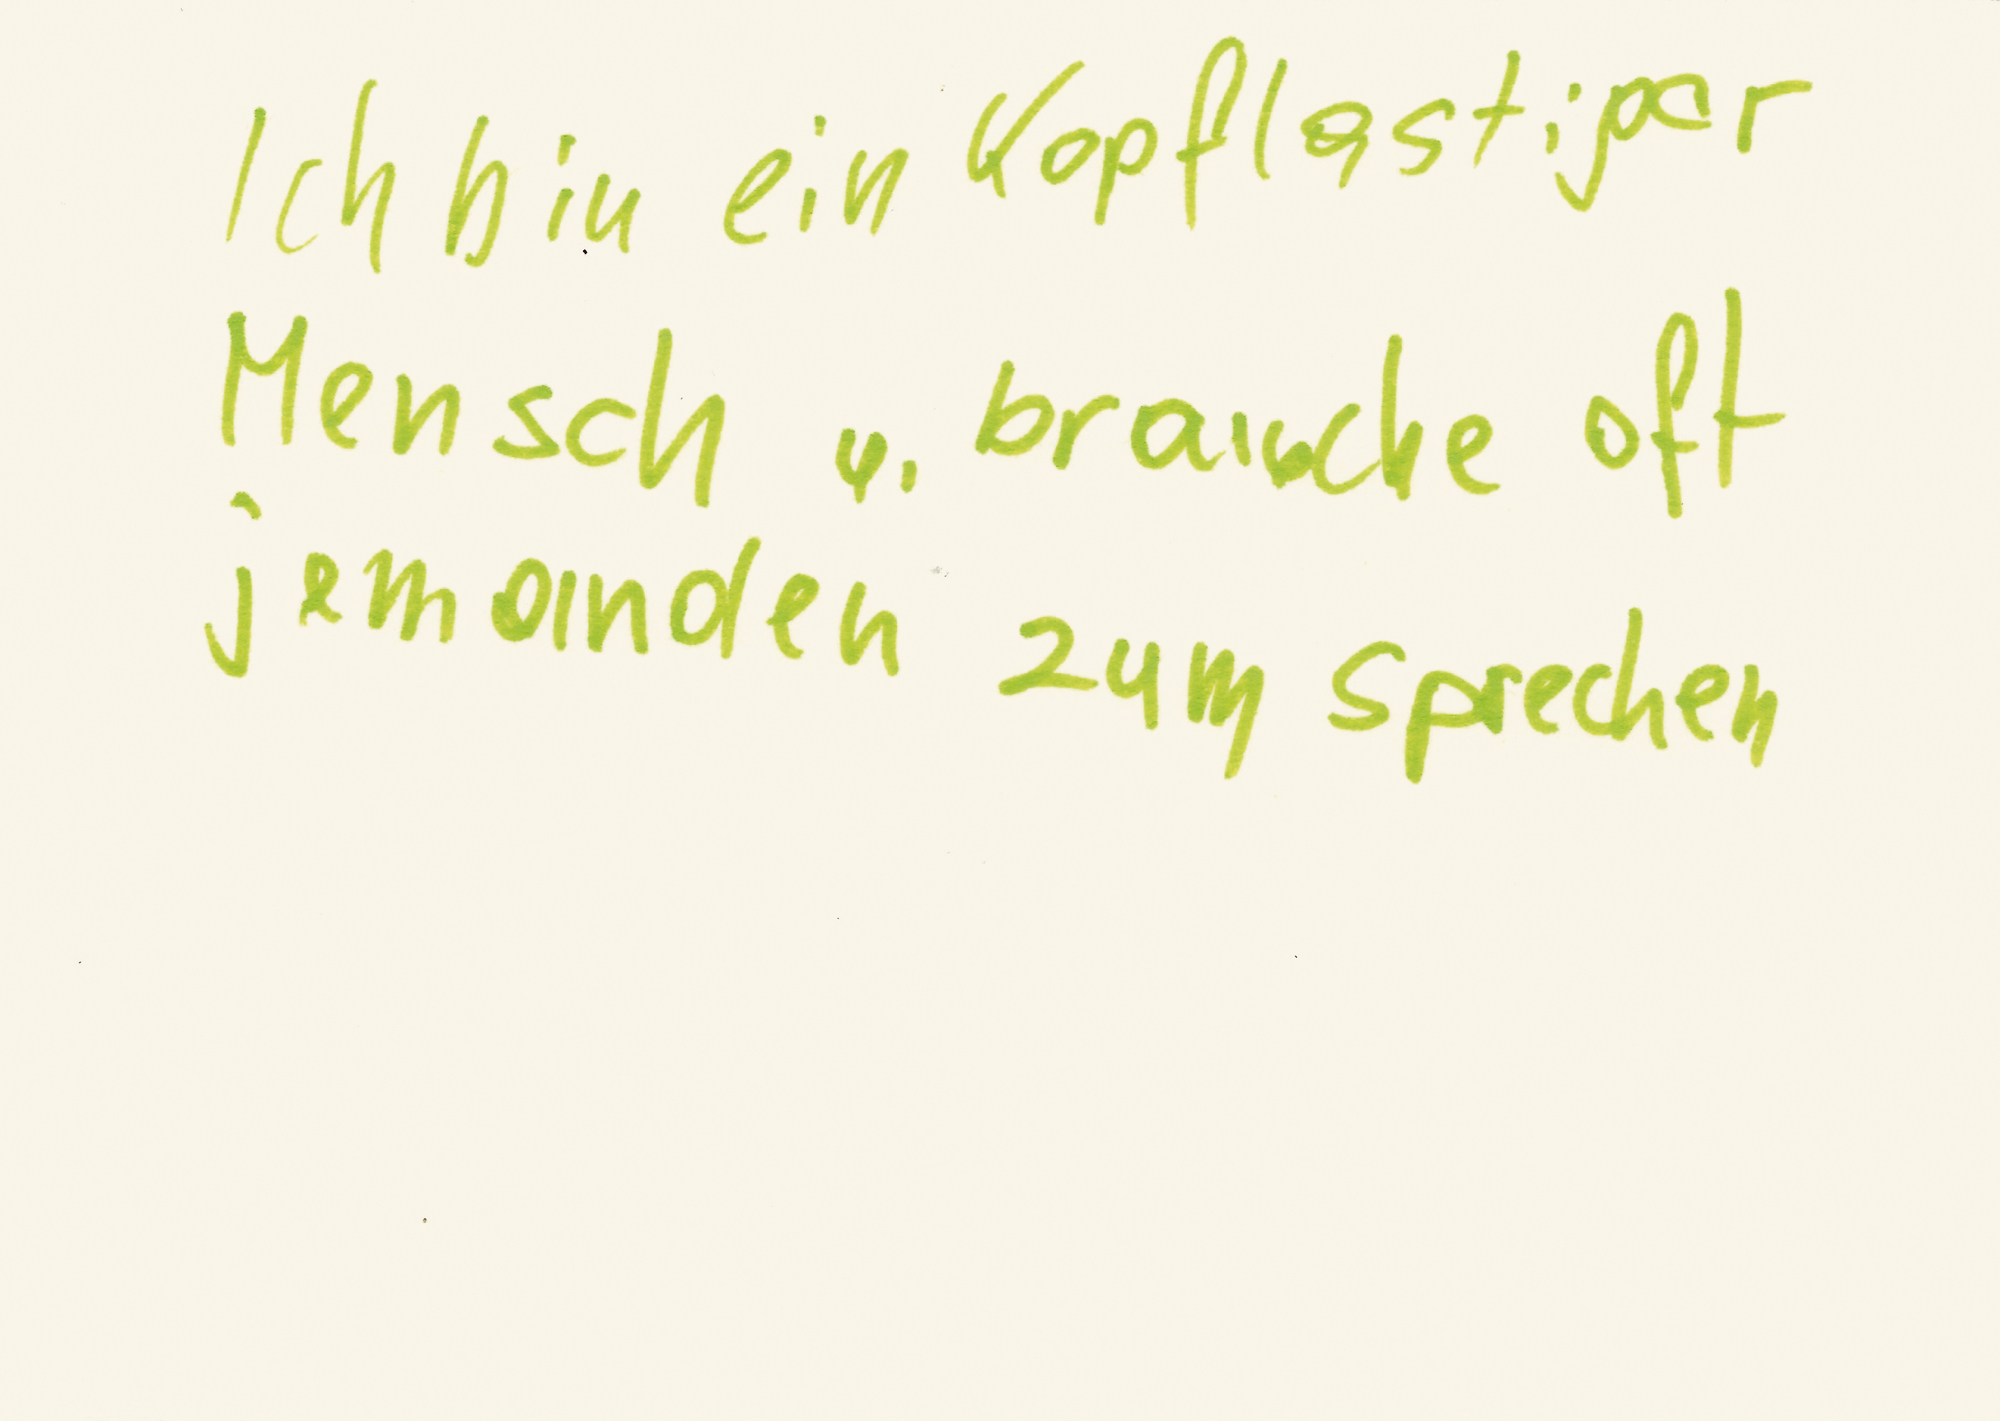 Ich bin ein Kopflastiger
Mensch u. brauche oft
jemanden zum sprechen